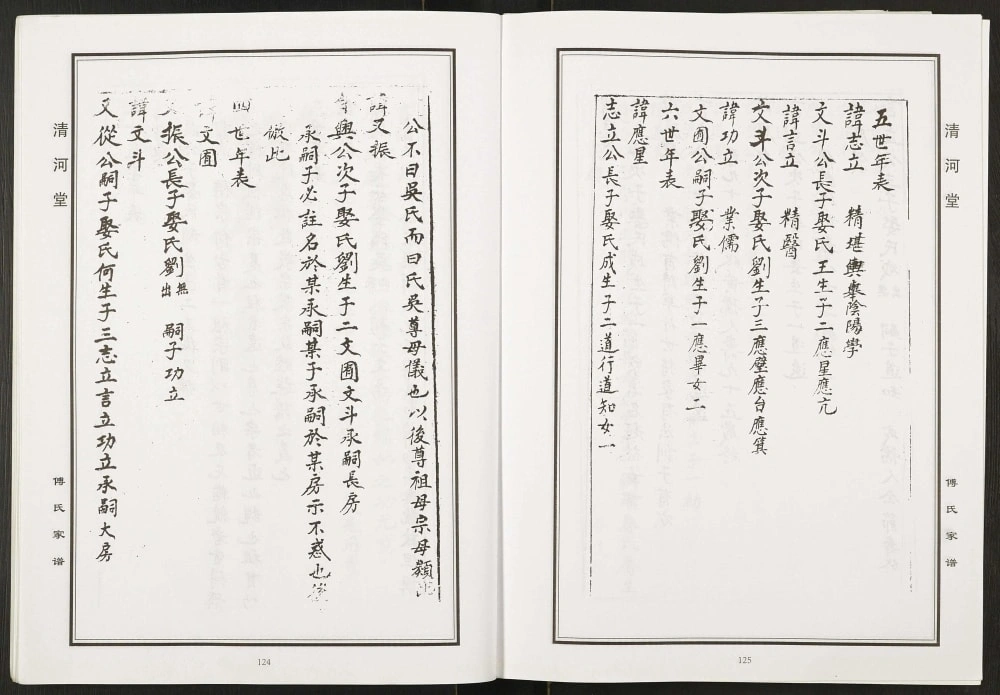 清河堂
傅氏家谱
公不曰吳氏而曰氏吳尊母儀也以後尊祖母宗母類此
諱又振
興公次子娶氏劉生子二文圃文斗承嗣長房
承嗣子必註名於某承嗣某子承嗣於某房示不惑也後
倣此
四世年表
諱文圃
又振公長子娶氏劉無出 嗣子功立
諱文斗
又從公嗣子娶氏何生子三志立言立功立承嗣大房
124
清河堂
傅氏家谱
五世年表
諱志立 精堪輿畢陰陽學
文斗公長子娶氏王生子二應星應亢
諱言立 精醫
文斗公次子娶氏劉生子三應壁應台應箕
諱功立 業儒
文圃公嗣子娶氏劉生子一應畢女二
六世年表
諱應星
志立公長子娶氏成生子二道行道知女一
125